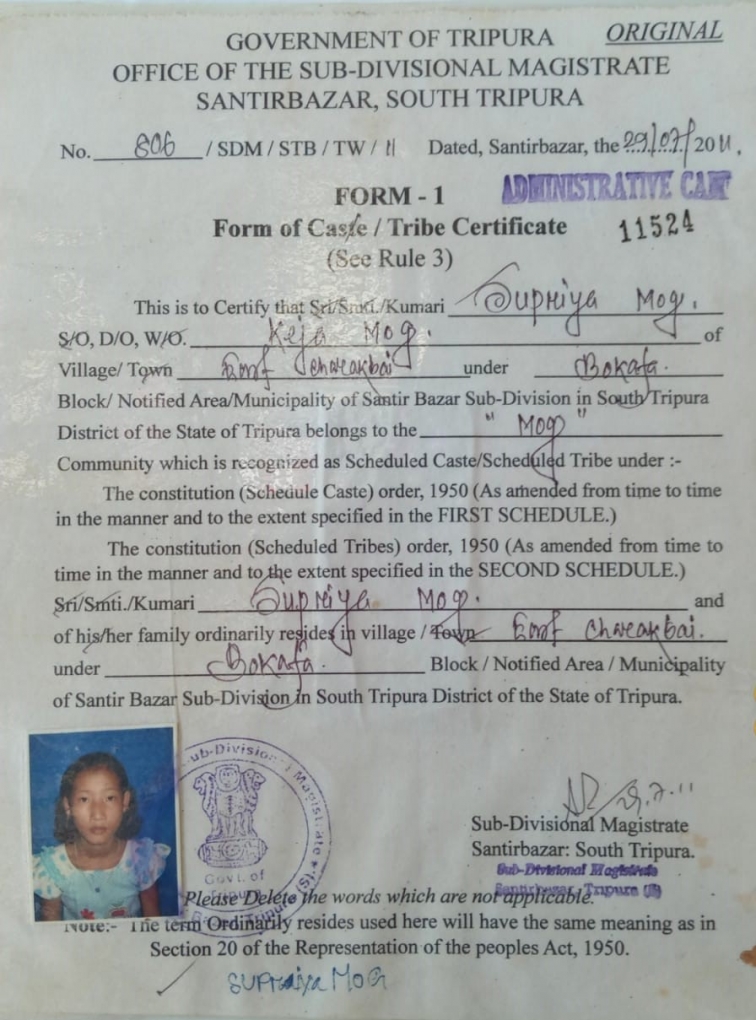 ORIGINAL
GOVERNMENT OF TRIPURA
OFFICE OF THE SUB-DIVISIONAL MAGISTRATE
SANTIRBAZAR, SOUTH TRIPURA
No. 806 / SDM / STB / TW / 11 Dated, Santirbazar, the 29/07/2011.
ADMINISTRATIVE CAMP
FORM - 1
Form of Caste / Tribe Certificate 11524
(See Rule 3)
This is to Certify that Sri/Smti./Kumari Supriya Mog.
S/O, D/O, W/O. Keja Mog. of
Village/ Town East Charakbai under Bokafa.
Block/ Notified Area/Municipality of Santir Bazar Sub-Division in South Tripura
District of the State of Tripura belongs to the "Mog"
Community which is recognized as Scheduled Caste/Scheduled Tribe under :-
The constitution (Schedule Caste) order, 1950 (As amended from time to time
in the manner and to the extent specified in the FIRST SCHEDULE.)
The constitution (Scheduled Tribes) order, 1950 (As amended from time to
time in the manner and to the extent specified in the SECOND SCHEDULE.)
Sri/Smti./Kumari Supriya Mog. and
of his/her family ordinarily resides in village / Town East Charakbai.
under Bokafa. Block / Notified Area / Municipality
of Santir Bazar Sub-Division in South Tripura District of the State of Tripura.
Sub-Divisional Magistrate
Govt. of
Tripura
29.7.11
Sub-Divisional Magistrate
Santirbazar: South Tripura.
Sub-Divisional Magistrate
Santirbazar, Tripura (S)
Please Delete the words which are not applicable.
Note:- The term Ordinarily resides used here will have the same meaning as in
Section 20 of the Representation of the peoples Act, 1950.
SUPraiya MOG